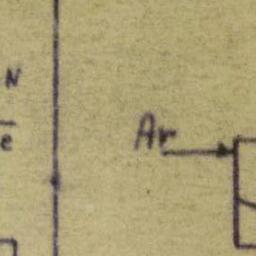 N
e
Ar